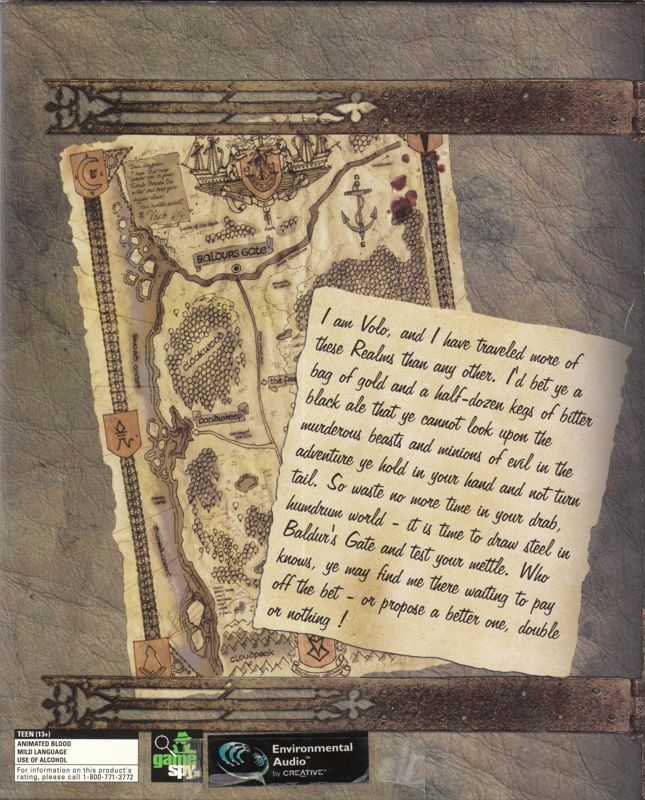 BALDURS GATE
cloakwood
candlekeep
cloudpeak
I am Volo, and I have traveled more of
these Realms than any other. I'd bet ye a
bag of gold and a half-dozen kegs of bitter
black ale that ye cannot look upon the
murderous beasts and minions of evil in the
adventure ye hold in your hand and not turn
tail. So waste no more time in your drab,
humdrum world - it is time to draw steel in
Baldur's Gate and test your mettle. Who
knows, ye may find me there waiting to pay
off the bet - or propose a better one, double
or nothing !
TEEN (13+)
ANIMATED BLOOD
MILD LANGUAGE
USE OF ALCOHOL
For information on this product's
rating, please call 1-800-771-3772
game
spy
Environmental
Audio™
by CREATIVE®